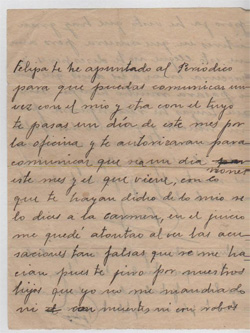 Felipa te he apuntado al Periódico
para que puedas comunicar un
vez con el mio y otra con el tuyo
te pasas un dia de este mes por
la oficina y te autorizaran para
comunicar que sea un dia
nones
este mes y el que viene, con lo
que te hayan dicho de lo mio se
lo dices a la Carmen, en el juicio
me quedé atontao al ver las acu
saciones tan falsas que se me ha
cian pues te juro por nuestros
hijos que yo no me manchado
ni muertes ni con robos